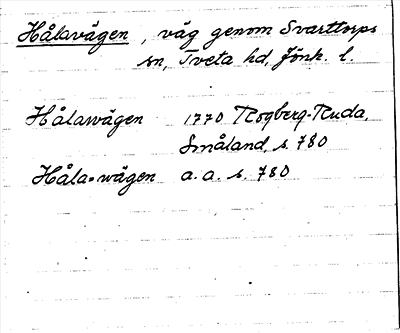 Hålavägen, väg genom Svarttorps
sn, Tveta hd, Jönk. l.
Hålawägen 1770 Rogberg-Ruda,
Småland, s. 780
Håla-wägen a. a. s. 780